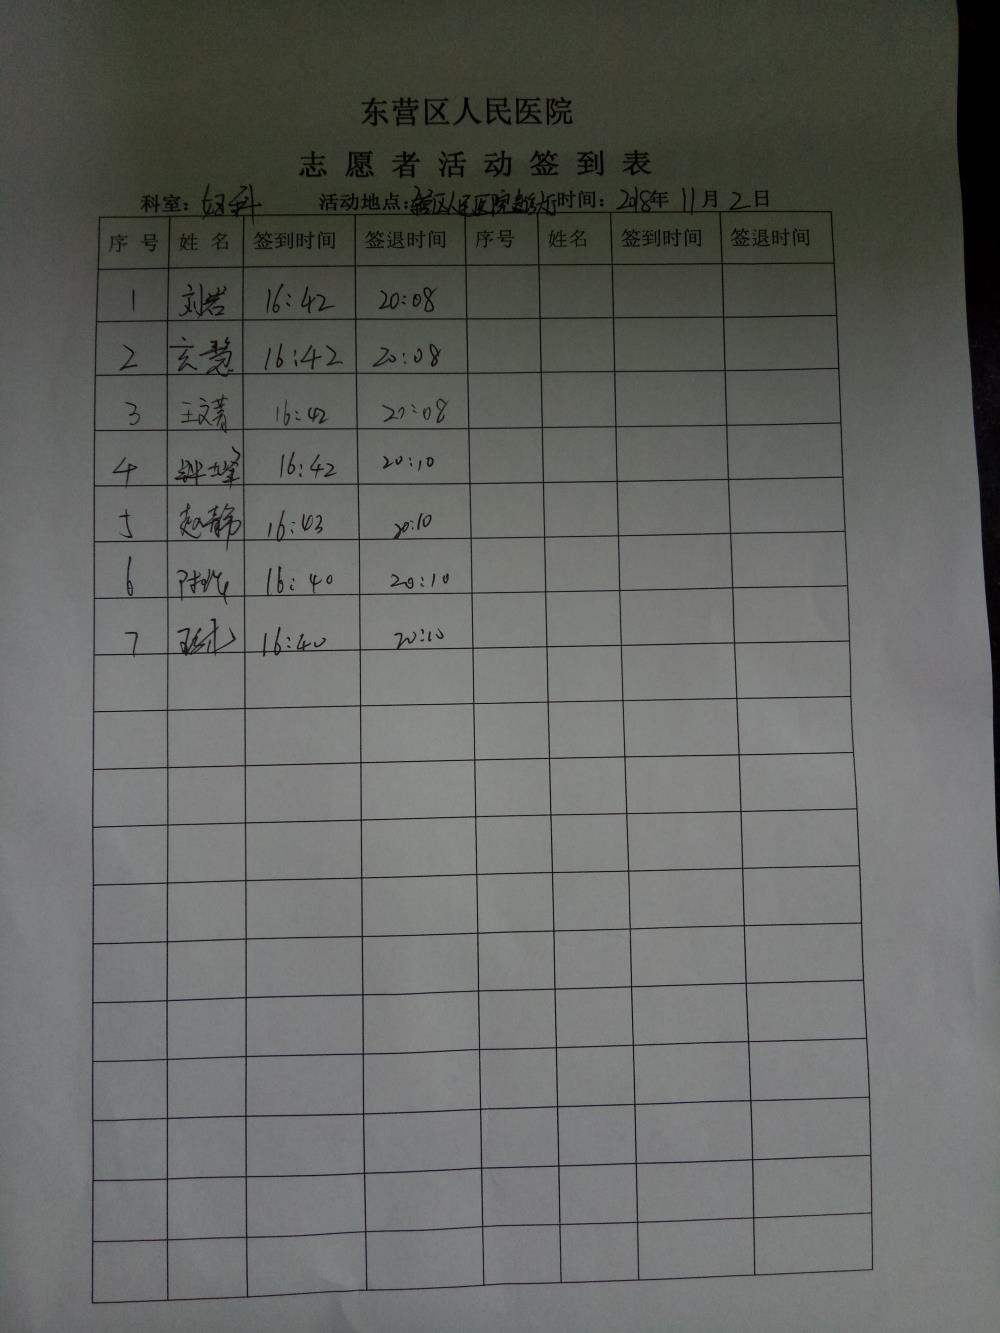 东营区人民医院
志愿者活动签到表
科室：妇科 活动地点：东营区人民医院 时间：2018年11月2日
序号 姓名 签到时间 签退时间 序号 姓名 签到时间 签退时间
1 刘岩 16:42 20:08
2 玄慧 16:42 20:08
3 王文菁 16:42 20:08
4 16:42 20:10
5 赵静 16:43 20:10
6 16:40 20:10
7 16:40 20:10